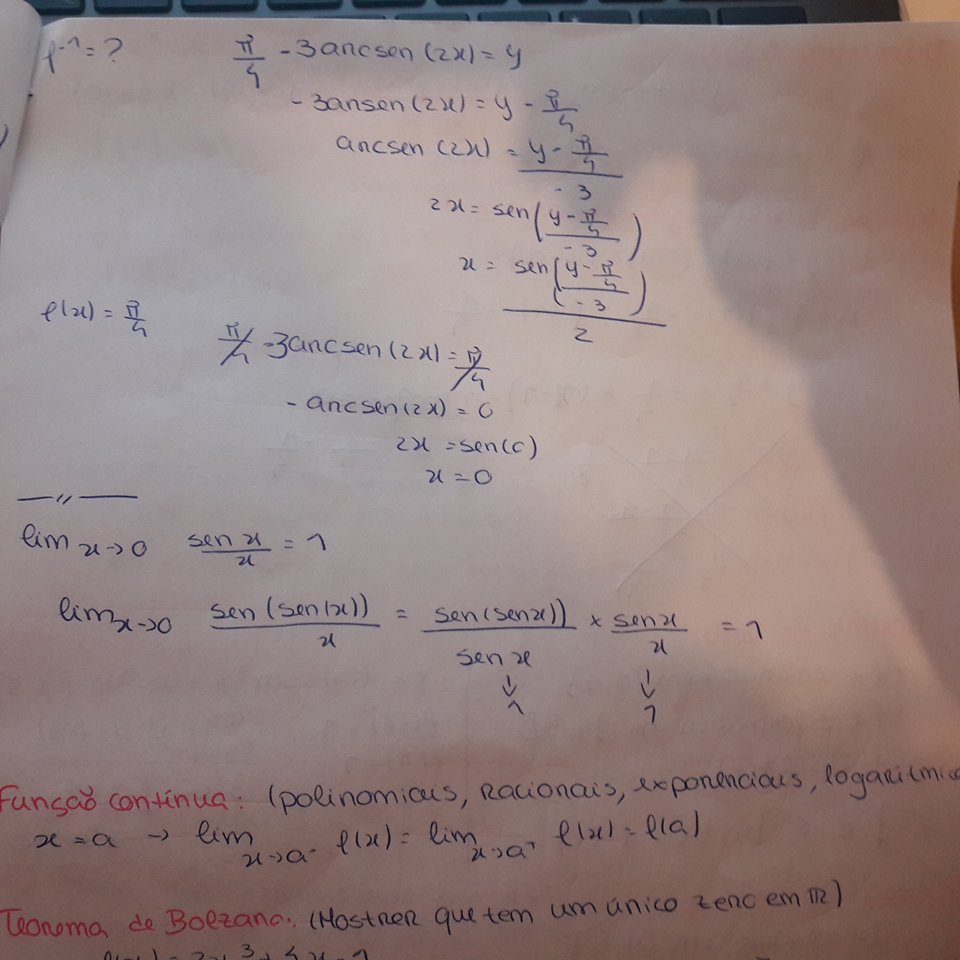 f⁻¹ = ? π/4 - 3 arcsen (2x) = y
- 3 arsen (2x) = y - π/4
arcsen (2x) = (y - π/4)/(-3)
2x = sen((y - π/4)/(-3))
x = sen((y - π/4)/(-3))/2
f(x) = π/4
π/4 - 3 arcsen (2x) = π/4
- arcsen (2x) = 0
2x = sen(0)
x = 0
— // —
lim x→0 sen x / x = 1
lim x→0 sen (sen(x)) / x = sen (sen x)) / sen x × sen x / x = 1
↓ ↓
1 1
Função contínua: (polinomiais, racionais, exponenciais, logarítmic
x = a → lim x→a⁻ f(x) = lim x→a⁺ f(x) = f(a)
Teorema de Bolzano: (Mostrar que tem um único zero em ℝ)